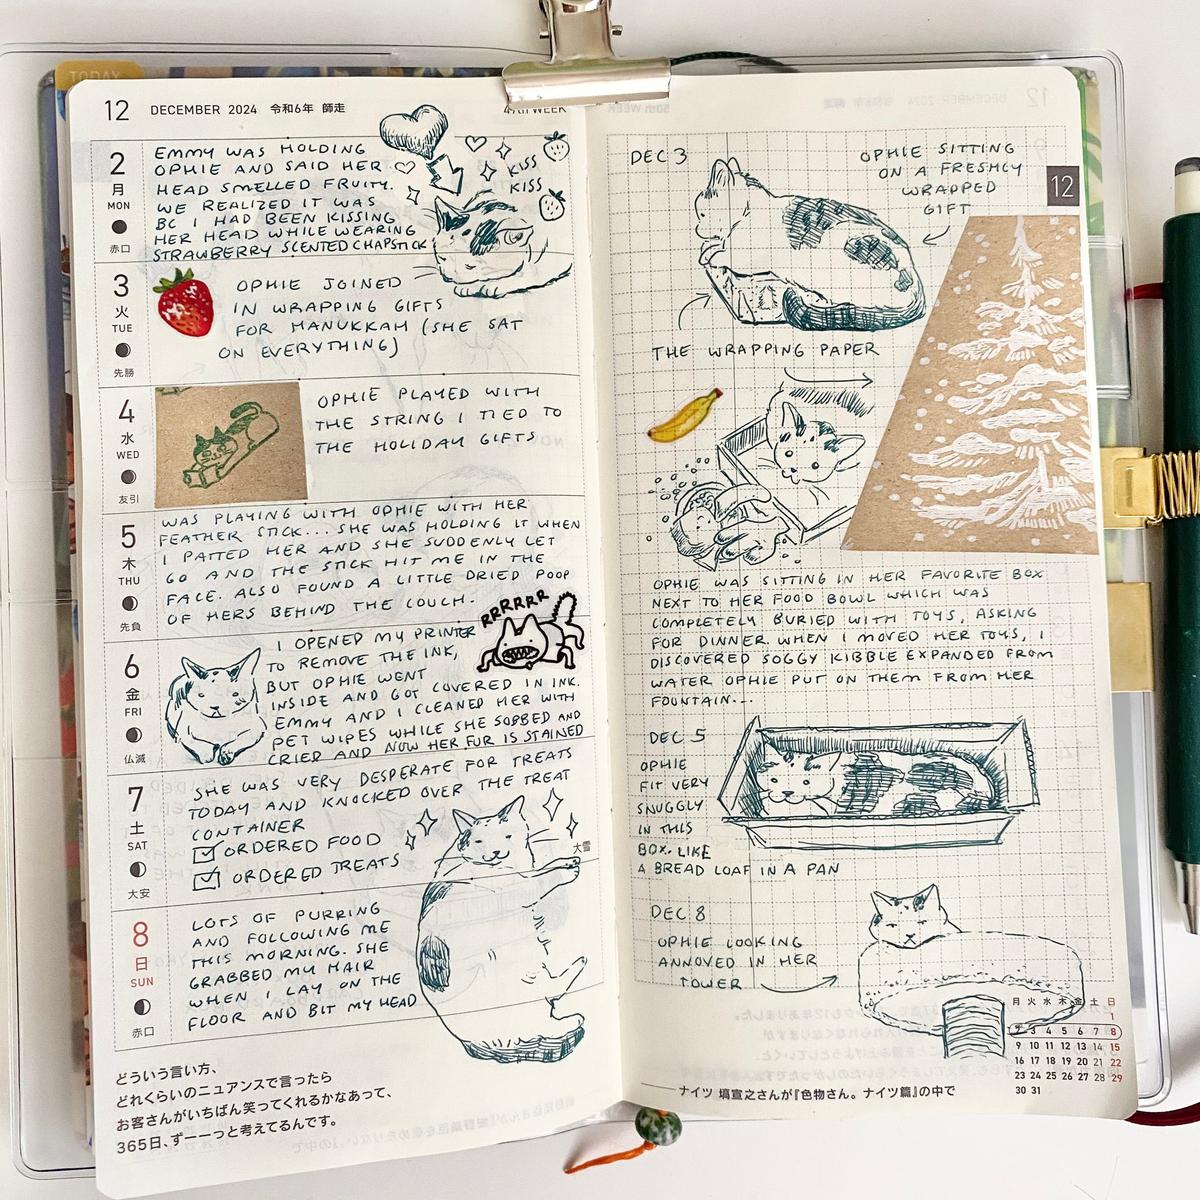 TODAY
12 DECEMBER 2024 令和6年 師走
WEEK
2
月
MON
赤口
EMMY WAS HOLDING
OPHIE AND SAID HER
HEAD SMELLED FRUITY.
WE REALIZED IT WAS
BC I HAD BEEN KISSING
HER HEAD WHILE WEARING
STRAWBERRY SCENTED CHAPSTICK
KISS
KISS
3
火
TUE
先勝
OPHIE JOINED
IN WRAPPING GIFTS
FOR HANUKKAH (SHE SAT
ON EVERYTHING)
4
水
WED
友引
OPHIE PLAYED WITH
THE STRING I TIED TO
THE HOLIDAY GIFTS
5
木
THU
先負
WAS PLAYING WITH OPHIE WITH HER
FEATHER STICK... SHE WAS HOLDING IT WHEN
I PATTED HER AND SHE SUDDENLY LET
GO AND THE STICK HIT ME IN THE
FACE. ALSO FOUND A LITTLE DRIED POOP
OF HERS BEHIND THE COUCH.
RRRRRR
6
金
FRI
仏滅
I OPENED MY PRINTER
TO REMOVE THE INK,
BUT OPHIE WENT
INSIDE AND GOT COVERED IN INK.
EMMY AND I CLEANED HER WITH
PET WIPES WHILE SHE SOBBED AND
CRIED AND NOW HER FUR IS STAINED
7
土
SAT
大安
SHE WAS VERY DESPERATE FOR TREATS
TODAY AND KNOCKED OVER THE TREAT
CONTAINER
ORDERED FOOD
ORDERED TREATS
大雪
8
日
SUN
赤口
LOTS OF PURRING
AND FOLLOWING ME
THIS MORNING. SHE
GRABBED MY HAIR
WHEN I LAY ON THE
FLOOR AND BIT MY HEAD
どういう言い方、
どれくらいのニュアンスで言ったら
お客さんがいちばん笑ってくれるかなあって、
365日、ずーーっと考えてるんです。
DEC 3
OPHIE SITTING
ON A FRESHLY
WRAPPED
GIFT
12
THE WRAPPING PAPER
OPHIE WAS SITTING IN HER FAVORITE BOX
NEXT TO HER FOOD BOWL WHICH WAS
COMPLETELY BURIED WITH TOYS, ASKING
FOR DINNER. WHEN I MOVED HER TOYS, I
DISCOVERED SOGGY KIBBLE EXPANDED FROM
WATER OPHIE PUT ON THEM FROM HER
FOUNTAIN...
DEC 5
OPHIE
FIT VERY
SNUGGLY
IN THIS
BOX. LIKE
A BREAD LOAF IN A PAN
DEC 8
OPHIE LOOKING
ANNOYED IN HER
TOWER
月 火 水 木 金 土 日
1
2 3 4 5 6 7 8
9 10 11 12 13 14 15
16 17 18 19 20 21 22
23 24 25 26 27 28 29
30 31
ナイツ 塙宣之さんが『色物さん。ナイツ篇』の中で